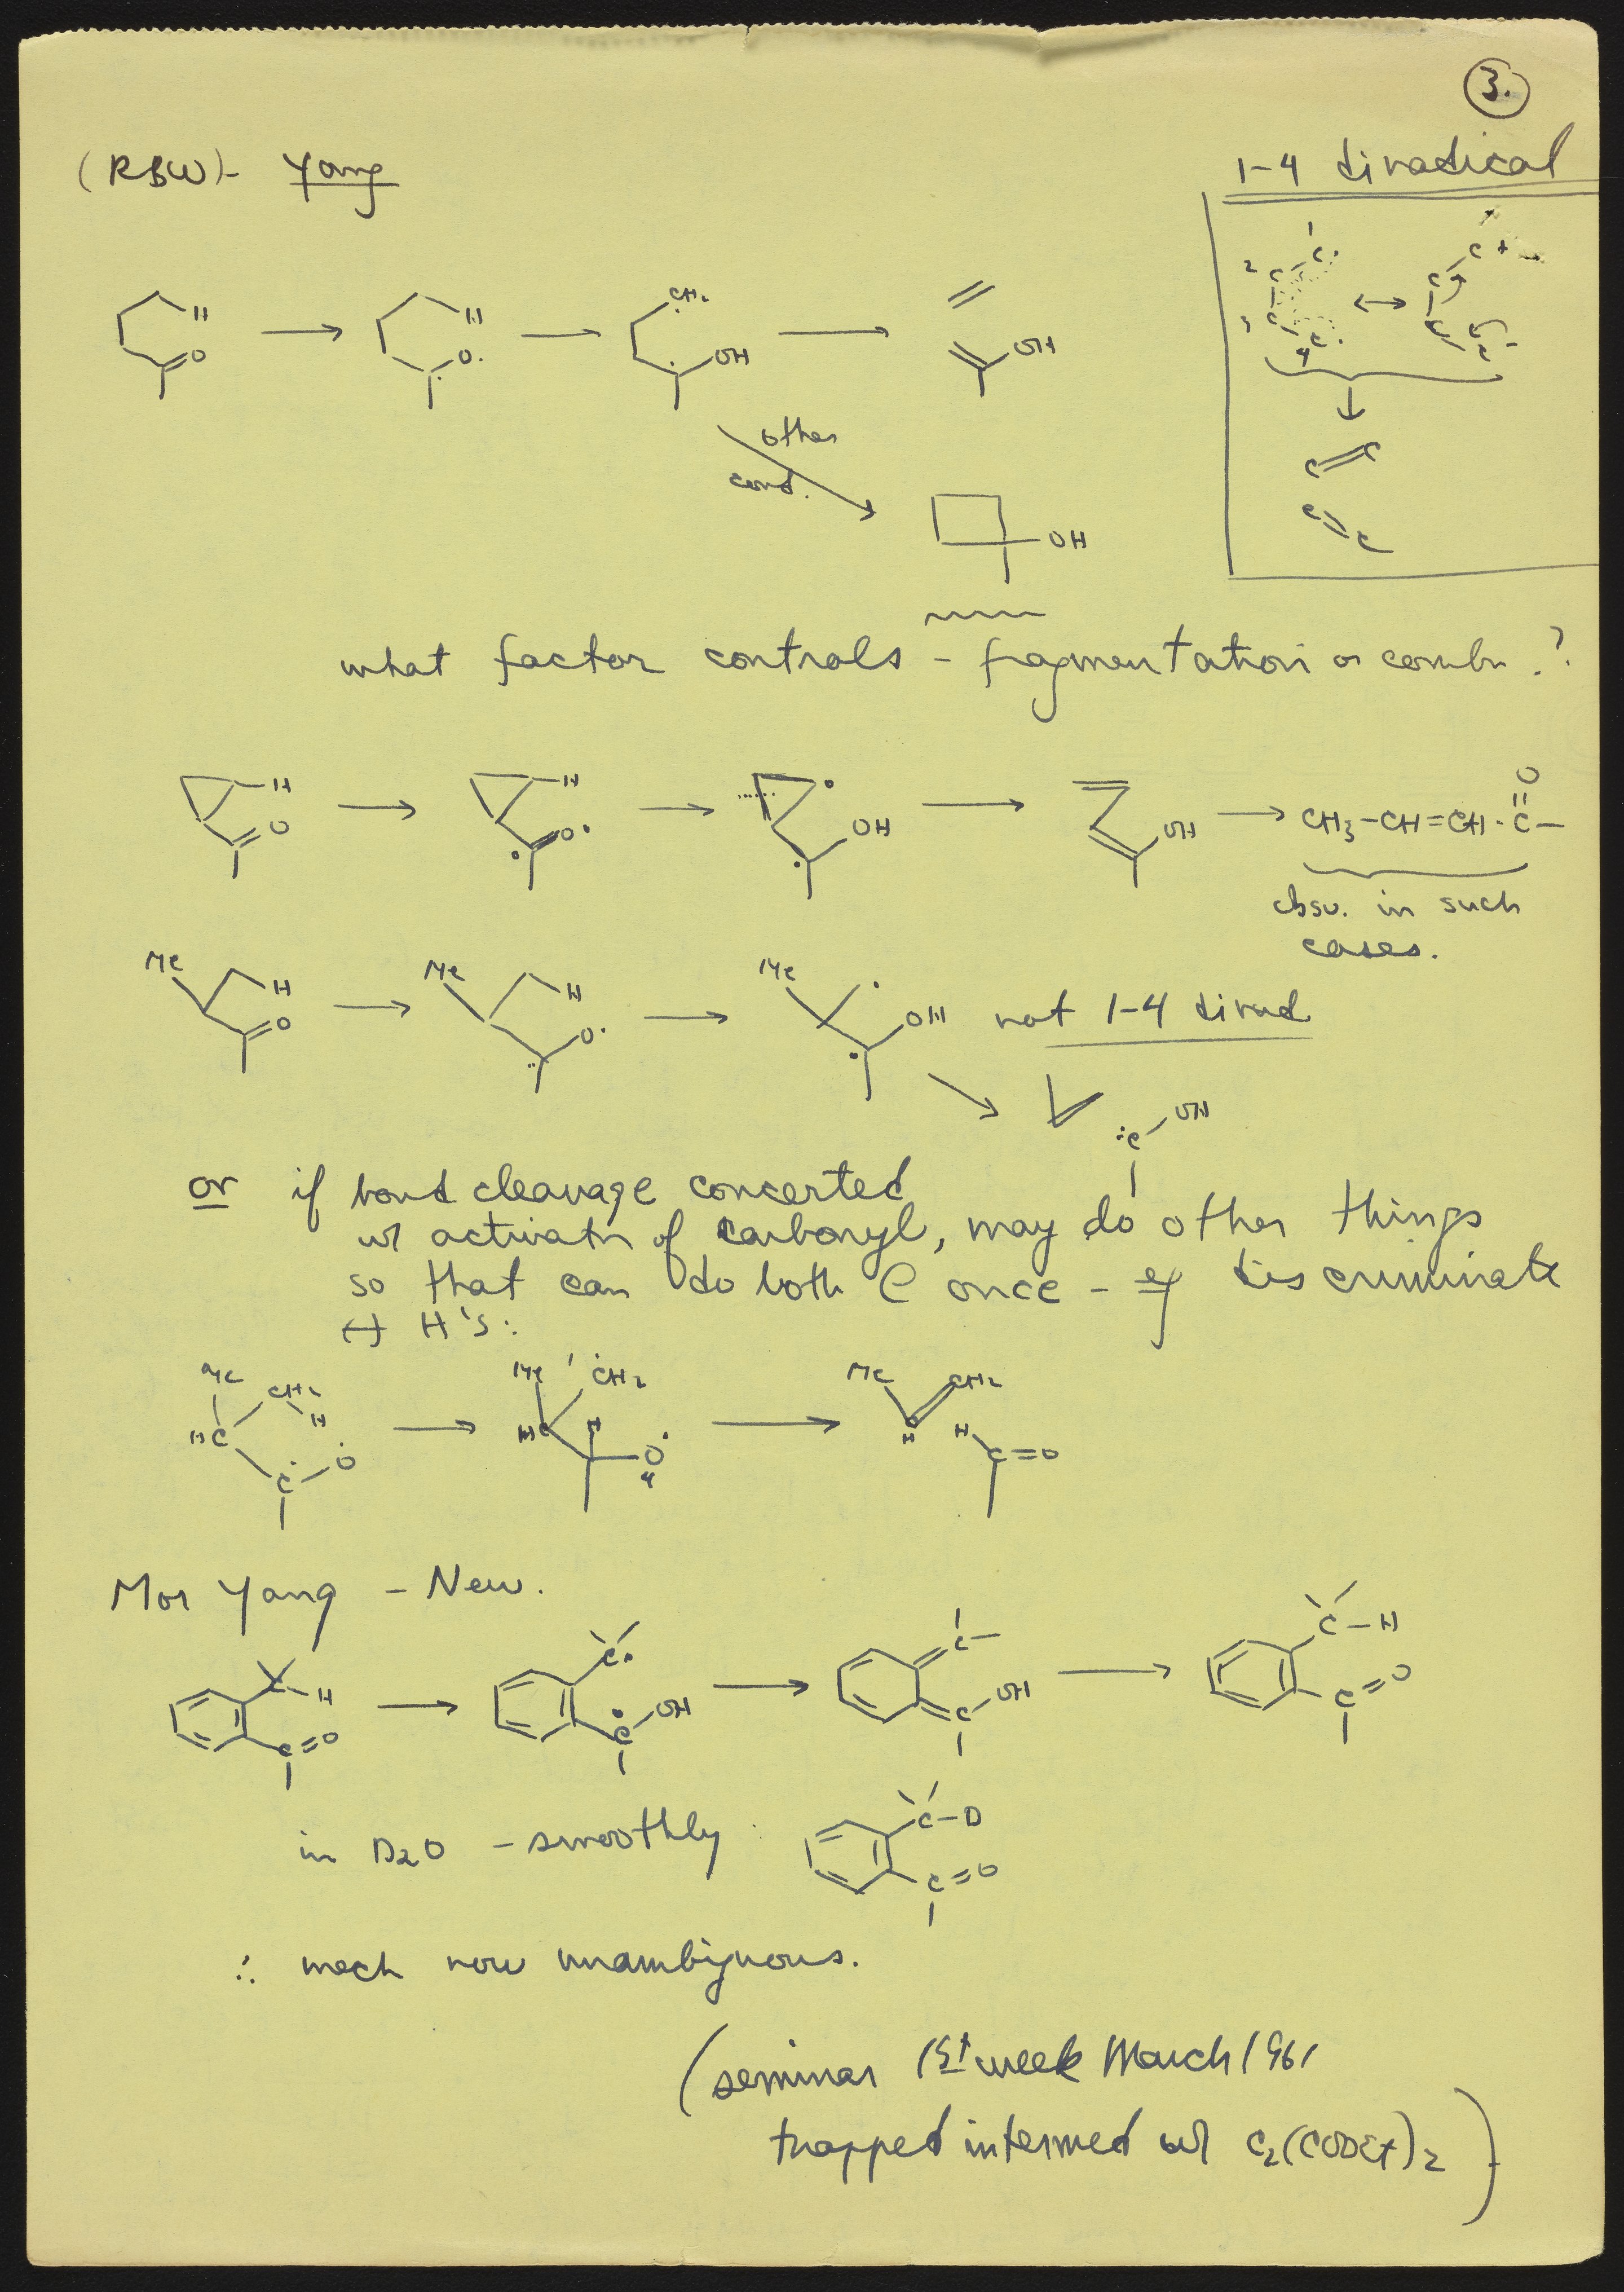 3.
(RBW)- Yang
1-4 diradical
1
C.
2 C
3 C
C.
4
C +
C
C
C -
C C
C
C
H
O
H
O.
CH2
OH
OH
other
cond.
OH
what factor controls - fragmentation or combn.?
H
O
H
O.
OH
OH
CH3-CH=CH-C-
O
obsv. in such
cases.
Me
H
O
Me
H
O.
Me
OH
not 1-4 dirad
:C
OH
or if bond cleavage concerted
w/ activatn of carbonyl, may do other things
so that can do both @ once - eg discriminate
↔ H's:
Me
CH2
H
HC
C
O
Me
1
CH2
HC
H
O
4
Me
CH2
H
H
C=O
Mor Yang - New.
C-H
C=O
C.
C
OH
C-
C
OH
C-H
C=O
in D2O - smoothly :
C-D
C=O
∴ mech now unambiguous.
(seminar 1st week March 1961
trapped intermed w/ C2(COOEt)2)